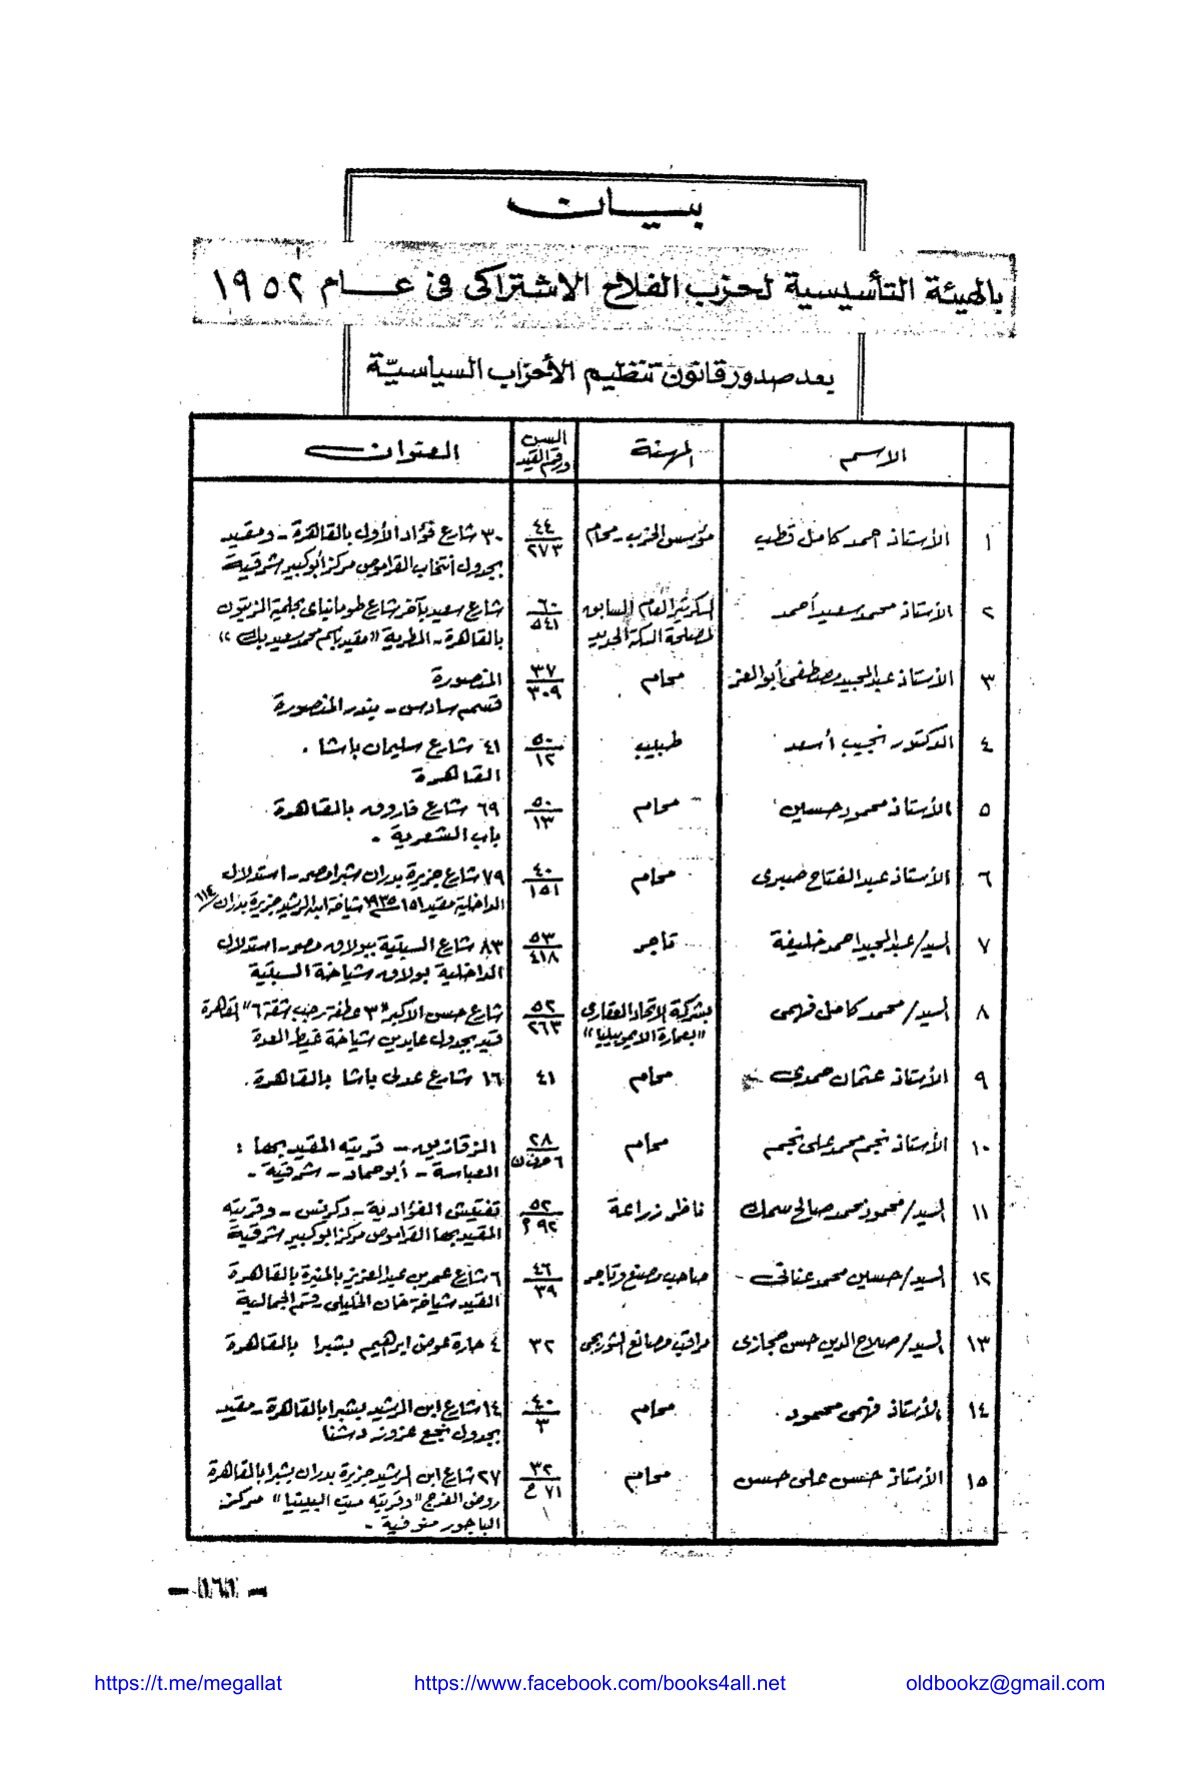 بيان
بالهيئة التأسيسية لحزب الفلاح الاشتراكى فى عام ١٩٥٢
بعد صدور قانون تنظيم الأحزاب السياسية
الاسم المهنة السن ورقم القيد العنوان
١ الأستاذ احمد كامل قطب مؤسس الحزب - محام ٤٤/٢٧٣ ٣٠ شارع فؤاد الأول بالقاهرة - ومقيد
بجدول انتخاب القراموص مركز أبو كبير شرقية
٢ الأستاذ محمد سعيد أحمد السكرتير العام السابق ٦٠/٥٤١ شارع سعيد بآخر شارع طومانباى بحلمية الزيتون
لمصلحة السكة الحديد بالقاهرة - المطرية "مقيد باسم محمد سعيد بك"
٣ الأستاذ عبد المجيد مصطفى أبو العز محام ٣٧/٣٠٩ المنصورة
قسم سادس - بندر المنصورة
٤ الدكتور نجيب أسعد طبيب ٥٠/١٢ ٤١ شارع سليمان باشا .
القاهرة
٥ الأستاذ محمود حسين محام ٥٠/١٣ ٦٩ شارع فاروق بالقاهرة .
باب الشعرية -
٦ الأستاذ عبد الفتاح صبرى محام ٤٠/١٥١ ٧٩ شارع جزيرة بدران شبرا مصر - استدلال
الداخلية مقيد ١٥١ شياخة ابن الرشيد جزيرة بدران
٧ السيد/ عبد المجيد احمد خليفة تاجر ٥٣/٤١٨ ٨٣ شارع السبتية ببولاق مصر - استدلال
الداخلية بولاق شياخة السبتية
٨ السيد/ محمد كامل فهمى بشركة الاتحاد العقارى ٥٢/٢٦٣ شارع حسن الأكبر "٣ عطفة رجب شقة ٦" القاهرة
"بعمارة الايموبيليا" قيد بجدول عابدين شياخة غيط العدة
٩ الأستاذ عثمان حمدى محام ٤١ ١٦ شارع عدلى باشا بالقاهرة .
١٠ الأستاذ نجيم محمد على نجيم محام ٢٨ الزقازيق - قريته المقيد بها :
العباسة - أبو حماد - شرقية -
١١ السيد/ محمود محمد صالح سمك ناظر زراعة ٥٢/٩٢ م تفتيش الفؤادية - دكرنس - وقريته
المقيد بها القراموص مركز أبو كبير شرقية
١٢ السيد/ حسين محمد عنانى - صاحب مصنع وتاجر ٤٦/٣٩ ٦ شارع عمر بن عبد العزيز بالمنيرة بالقاهرة
المقيد شياخة خان الخليلى قسم الجمالية
١٣ السيد/ صلاح الدين حسن حجازى مراقب مصانع الشوربجى ٣٢ ٤ حارة عوض ابراهيم بشبرا بالقاهرة
١٤ الأستاذ فهمى محمود . محام ٤٠/٣ ١٤ شارع ابن الرشيد بشبرا بالقاهرة - مقيد
بجدول نجع عزوز دشنا
١٥ الأستاذ حسن على حسن محام ٣٢/٧١ ح ٢٧ شارع ابن الرشيد جزيرة بدران بشبرا بالقاهرة
روض الفرج "وقريته ميت البيضا" مركز
الباجور منوفية -
- ١٦٦ -
https://t.me/megallat https://www.facebook.com/books4all.net oldbookz@gmail.com